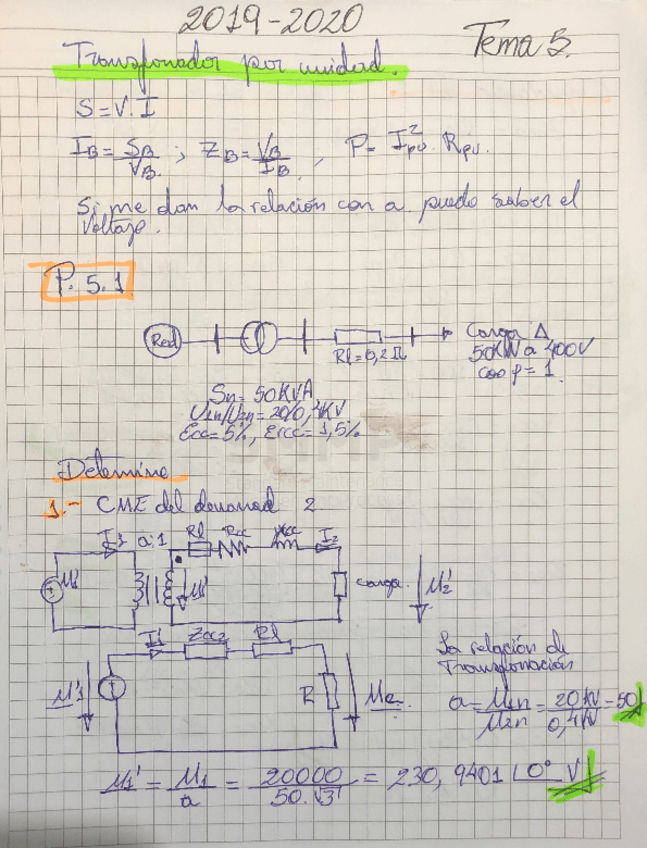 2019-2020
Tema 5.
Transfonador por unidad.
S = V. I
I_B = S_B/V_B ; Z_B = V_B/I_B , P = I²pu. Rpu.
Si me dan la relación con a puedo saber el
Voltaje.
P. 5.1
Red
Rl = 0,2 Ω
Carga Δ
50KW a 400V
cos φ = 1
Sn = 50KVA
U1n/U2n = 20/0,4KV
Ecc = 5%, Ercc = 1,5%
Determine
1.- CME del devanad 2
I'1 a:1 Rl Rcc Xcc I2
U1 U1' carga U2'
I1' Zcc2 Rl
U'1 R U2.
La relación de
Transfonación
a = U1n/U2n = 20 KV/0,4 KV = 50
U1' = U1/a = 20000/50.√3 = 230,9401 |0° V